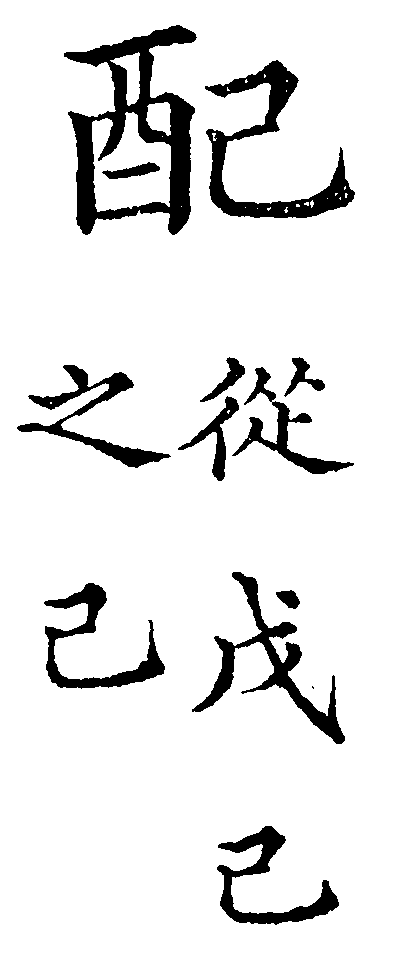 配
從戊己
之己